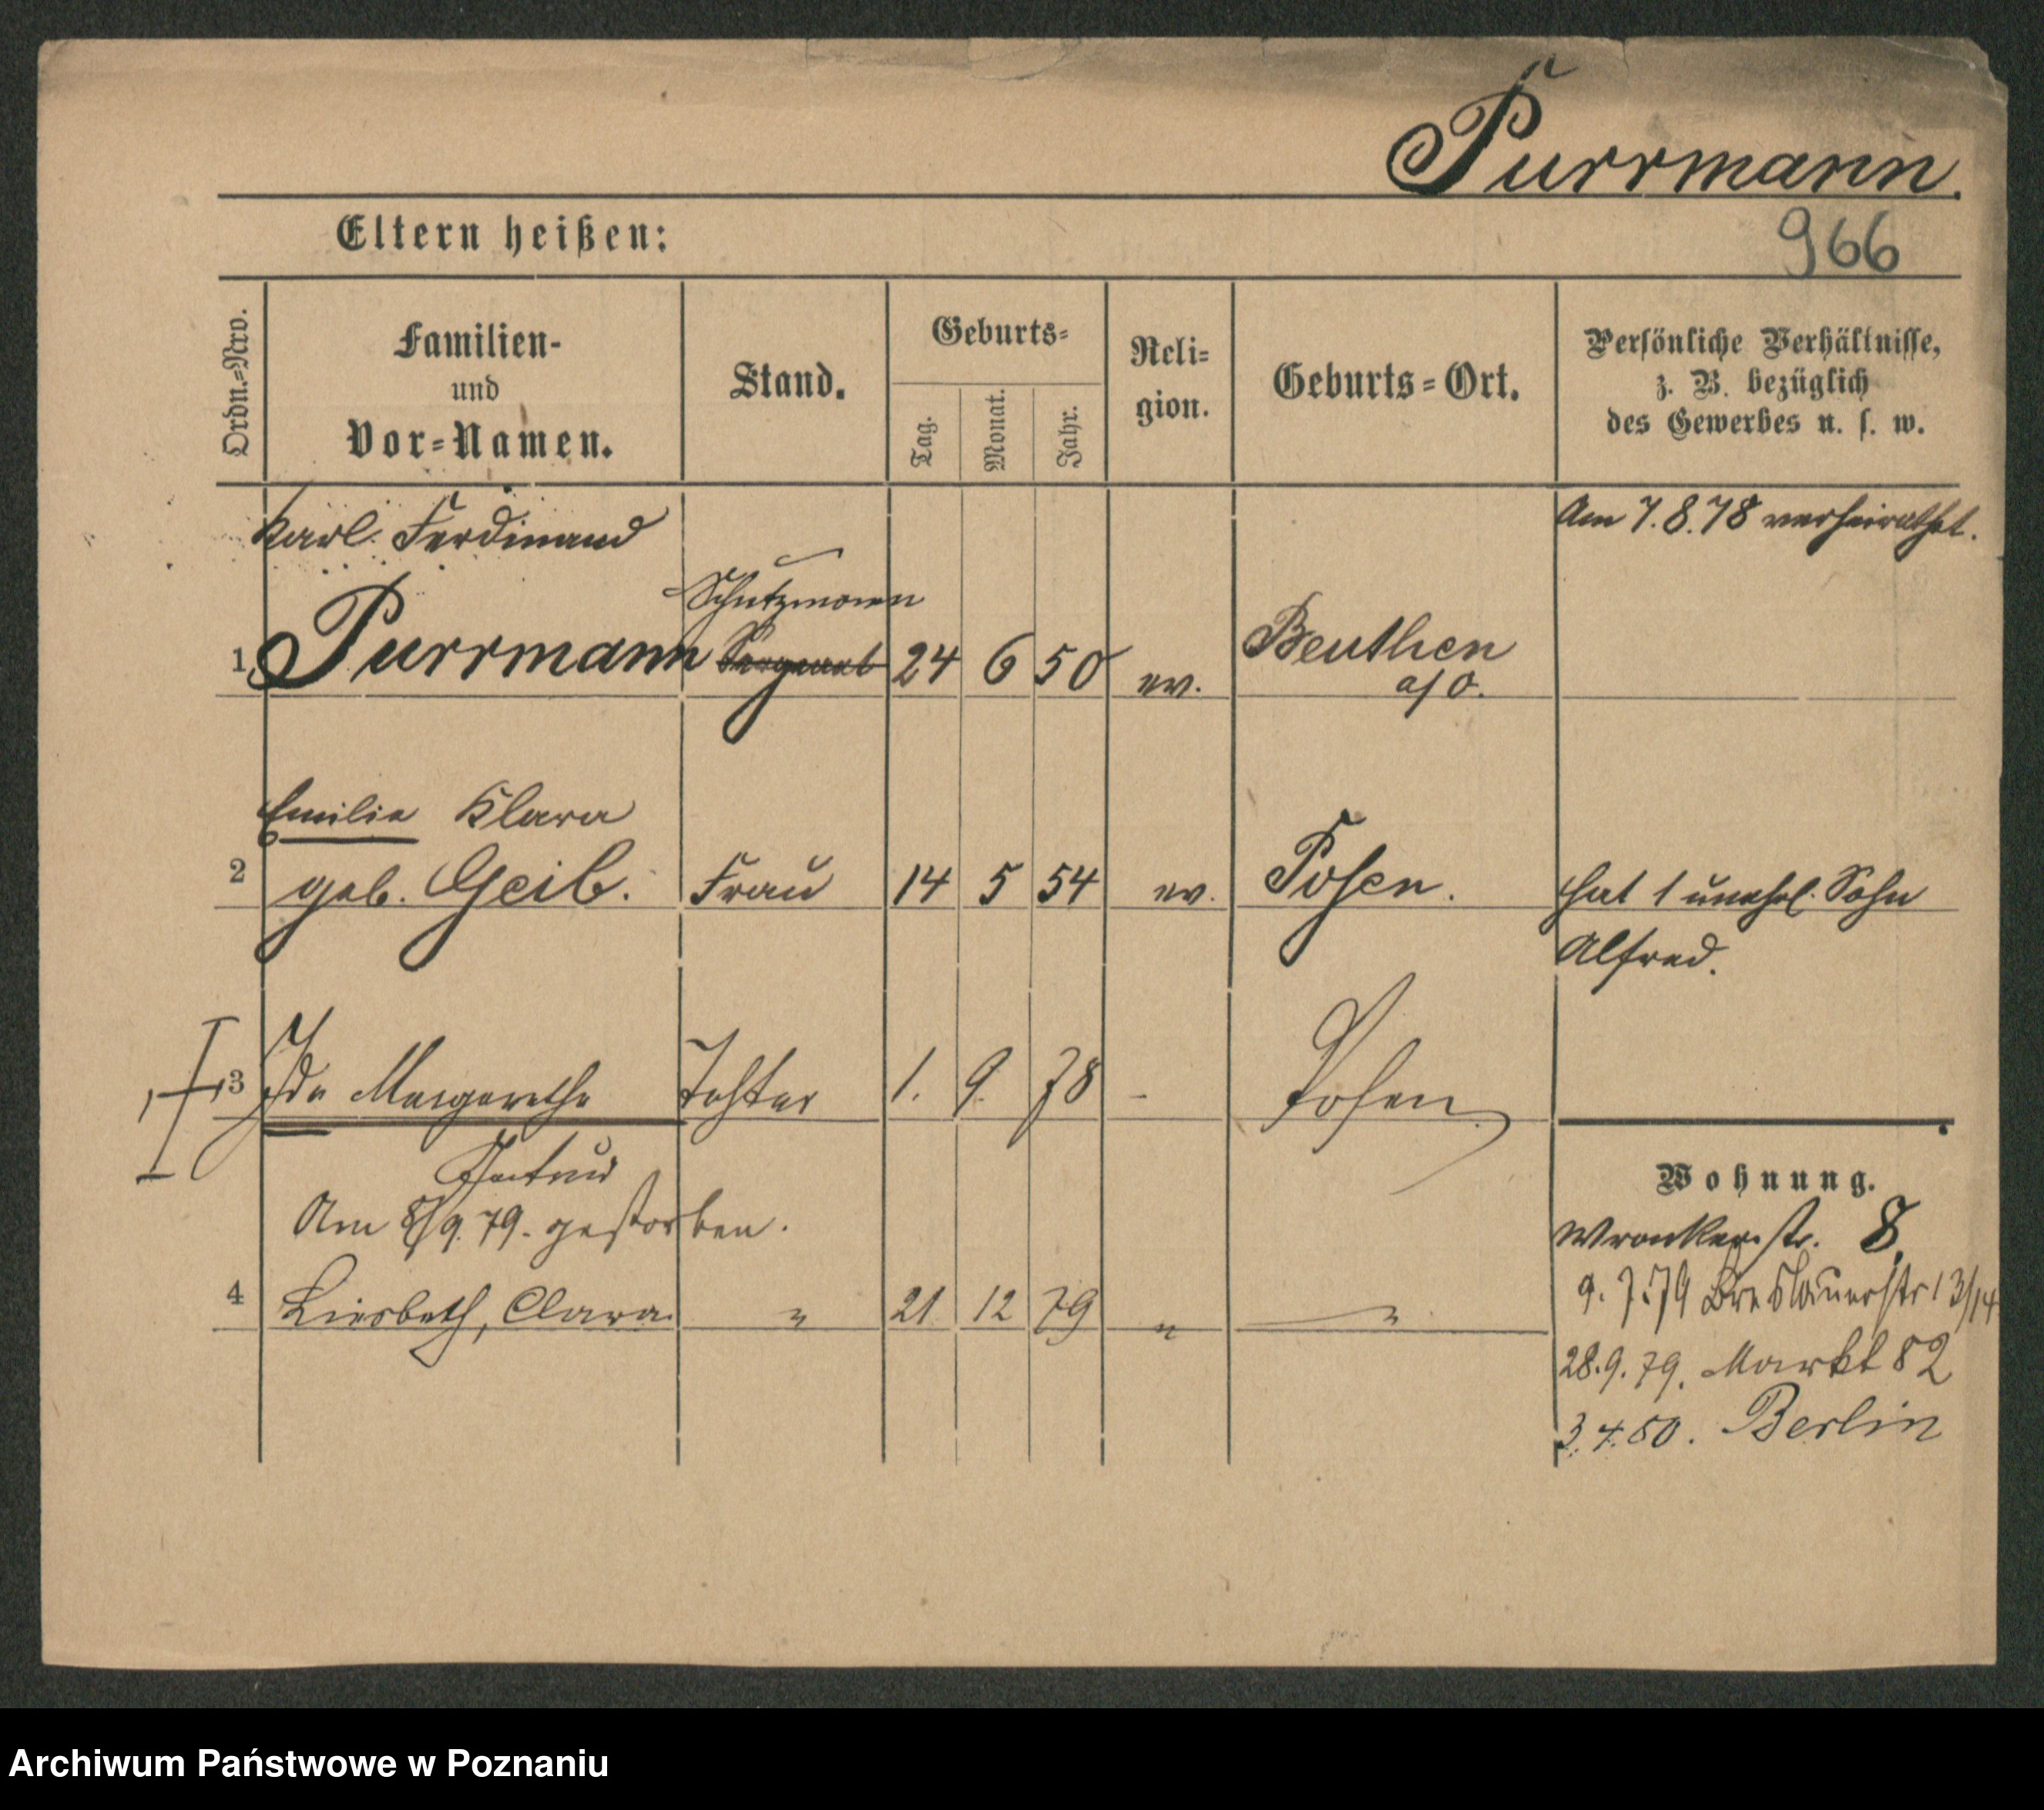 Purrmann.
Eltern heißen:
966
Ordn.=Nro.
Familien-
und
Vor=Namen.
Stand.
Geburts=
Tag.
Monat.
Jahr.
Reli=
gion.
Geburts=Ort.
Persönliche Verhältnisse,
z. B. bezüglich
des Gewerbes u. s. w.
Karl Ferdinand
Am 7.8.78 verheirathet.
Schutzmann
1 Purrmann Sergeant 24 6 50 ev. Beuthen
a/O.
Emilie Klara
2 geb. Geib. Frau 14 5 54 ev. Posen. hat 1 unehel. Sohn
Alfred.
3 Ida Margarethe Tochter 1. 9. 78 - Posen
Gertrud
Am 8/9.79. gestorben.
4 Liesbeth, Clara " 21 12 79 " "
Wohnung.
Wronkerstr. 8.
9.7.79 Breslauerstr 13/14
28.9.79. Markt 82
3.4.80. Berlin
Archiwum Państwowe w Poznaniu